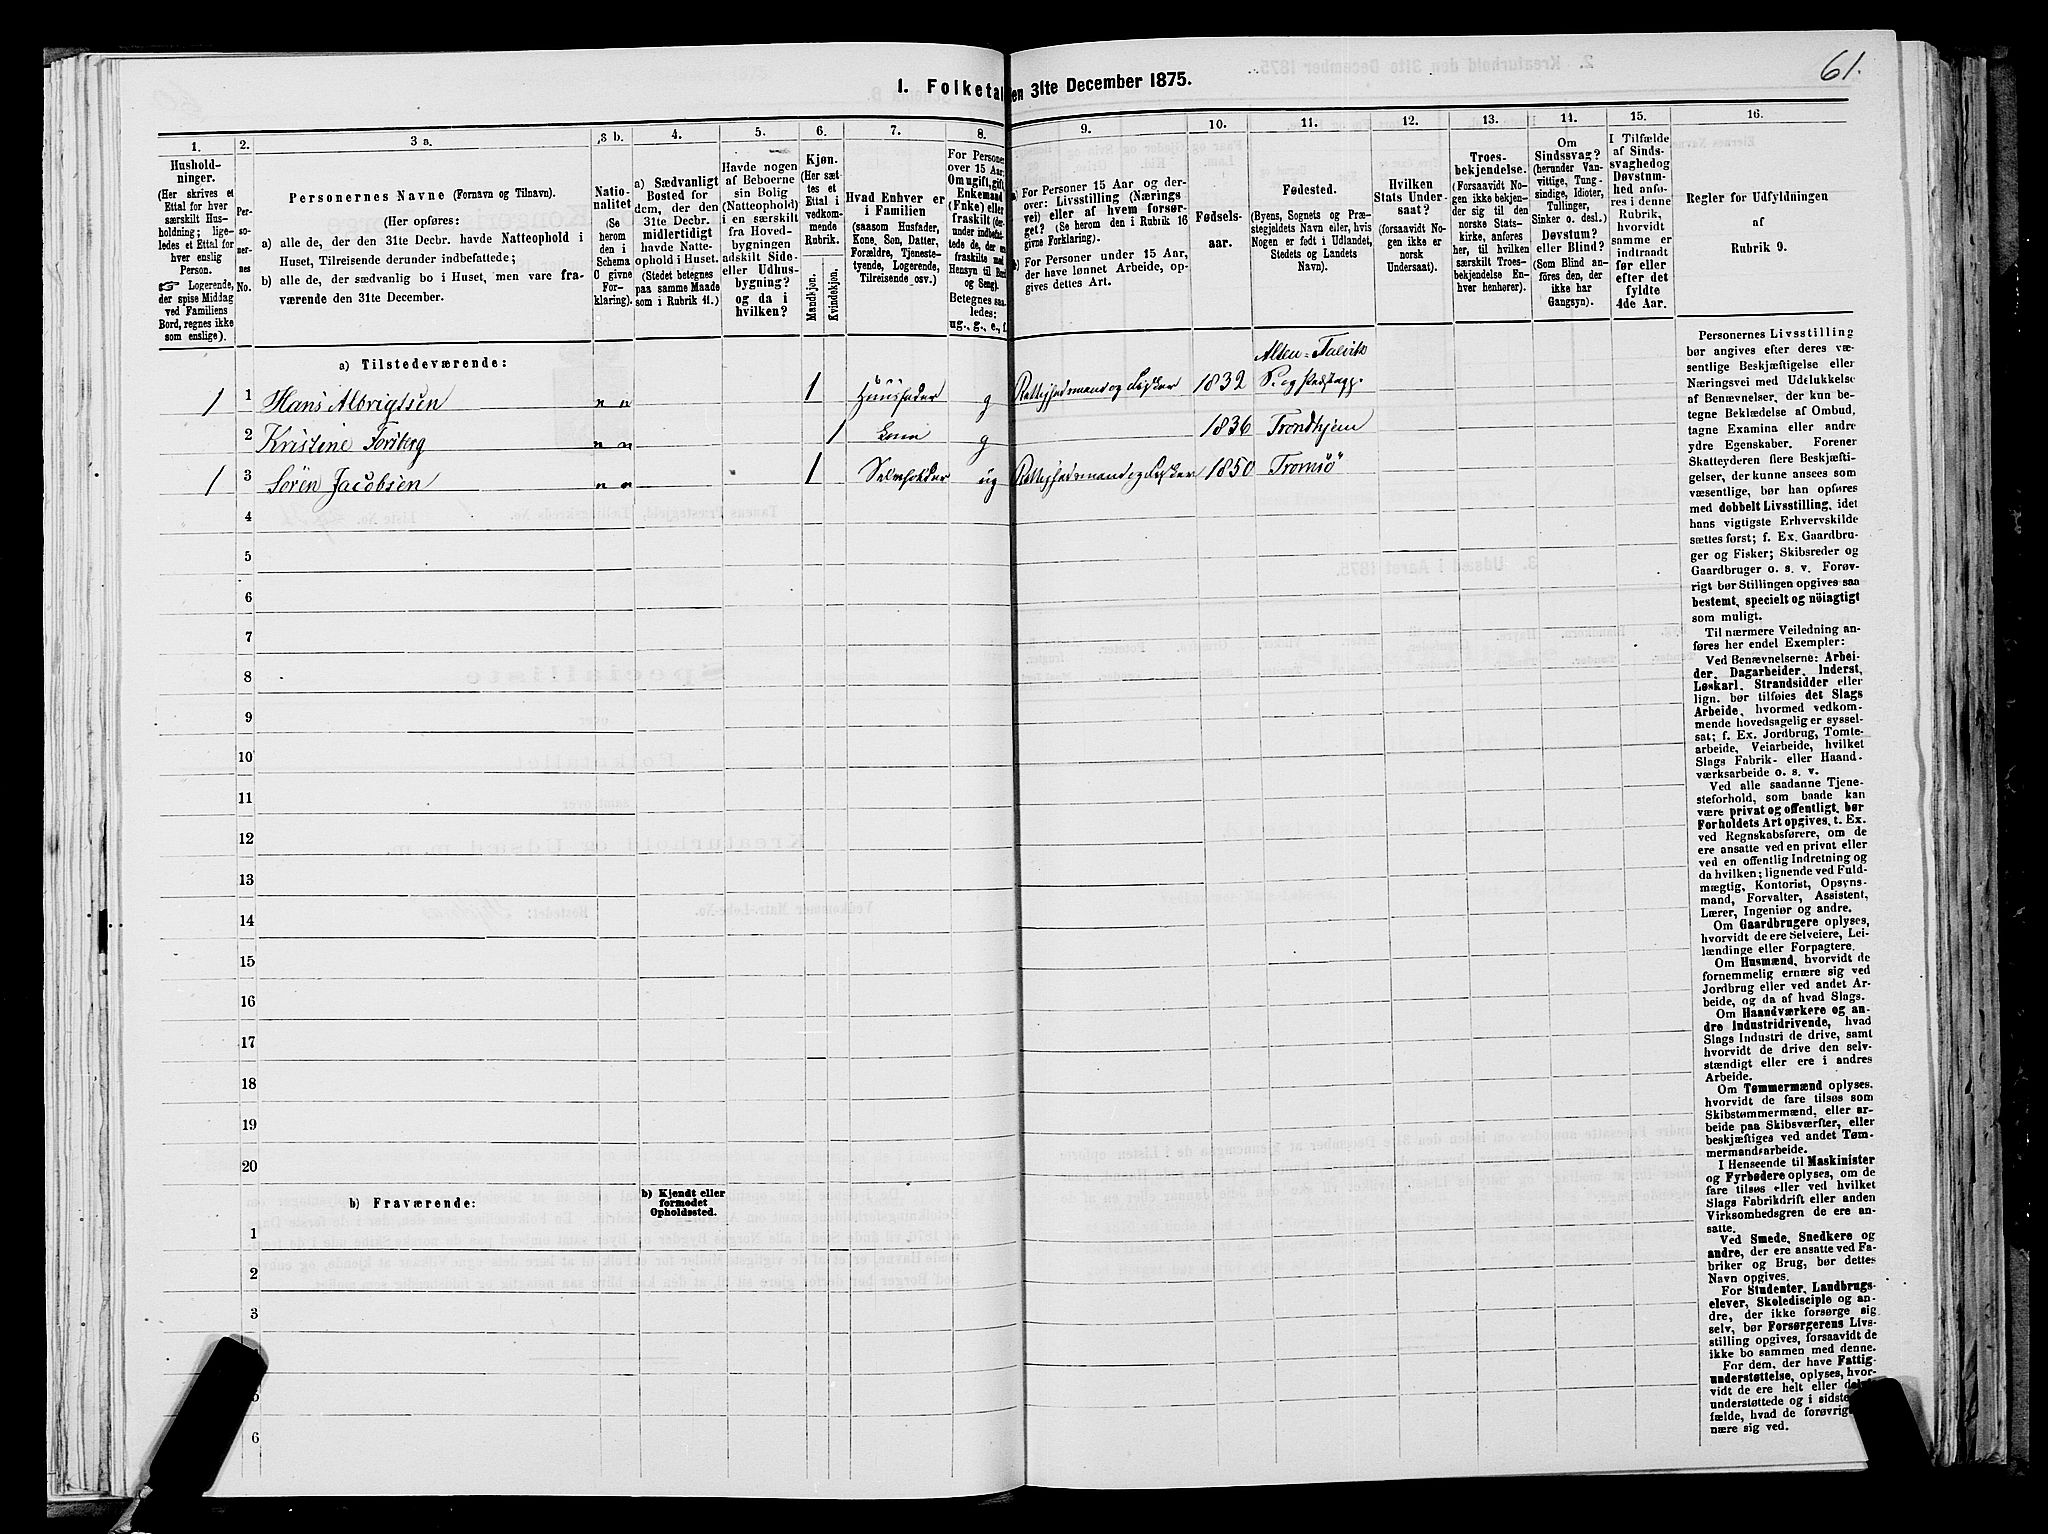 61.
1. Folketal
en 31te December 1875.
1.
Hushold-
ninger.
(Her skrives et
Ettal for hver
særskilt Hus-
holdning; lige-
ledes et Ettal for
hver enslig
Person.
☞ Logerende,
der spise Middag
ved Familiens
Bord, regnes ikke
som enslige).
2.
Per-
so-
ner-
nes
No.
3 a.
Personernes Navne (Fornavn og Tilnavn).
(Her opføres:
a) alle de, der den 31te Decbr. havde Natteophold i
Huset, Tilreisende derunder indbefattede;
b) alle de, der sædvanlig bo i Huset, men vare fra-
værende den 31te December.
3 b.
Natio-
nalitet
(Se
herom
den i
Schema
O givne
For-
klaring).
4.
a) Sædvanligt
Bosted for
dem, der den
31te Decbr.
midlertidigt
havde Natte-
ophold i Huset.
(Stedet betegnes
paa samme Maade
som i Rubrik 11.)
5.
Havde nogen
af Beboerne
sin Bolig
(Natteophold)
i en særskilt
fra Hoved-
bygningen
adskilt Side-
eller Udhus-
bygning?
og da i
hvilken?
6.
Kjøn.
(Her sæt-
tes et
Ettal i
vedkom-
mende
Rubrik.
Mandkjøn.
Kvindekjøn.
7.
Hvad Enhver er
i Familien
(saasom Husfader,
Kone, Son, Datter,
Forældre, Tjeneste-
tyende, Logerende,
Tilreisende osv.)
8.
For Personer
over 15 Aar:
Om ugift, gift,
Enkemand
(Enke) eller
fraskilt (der-
under indbefat-
tede de, der ere
fraskilte med
Hensyn til Bord
og Seng).
Betegnes saa-
ledes:
ug., g., e., f.
9.
a) For Personer 15 Aar og der-
over: Livsstilling (Nærings
vei) eller af hvem forsør-
get? (Se herom den i Rubrik 16
givne Forklaring).
b) For Personer under 15 Aar,
der have lønnet Arbeide, op-
gives dettes Art.
10.
Fødsels-
aar.
11.
Fødested.
(Byens, Sognets og Præ-
stegjeldets Navn eller, hvis
Nogen er født i Udlandet,
Stedets og Landets
Navn).
12.
Hvilken
Stats Under-
saat?
(forsaavidt No-
gen ikke er
norsk
Undersaat).
13.
Troes-
bekjendelse.
(Forsaavidt No-
gen ikke bekjen-
der sig til den
norske Stats-
kirke, anføres
her, til hvilken
særskilt Troes-
bekjendelse En-
hver henhører).
14.
Om
Sindssvag?
(herunder Van-
vittige, Tung-
sindige, Idioter,
Tullinger,
Sinker o. desl.)
Døvstum?
eller Blind?
(Som Blind an-
føres den, der
ikke har
Gangsyn).
15.
I Tilfælde
af Sinds-
svaghed og
Døvstum-
hed anfø-
res i denne
Rubrik,
hvorvidt
samme er
indtraadt
før eller
efter det
fyldte
4de Aar.
16.
Regler for Udfyldningen
af
Rubrik 9.
a) Tilstedeværende:
1 1 Hans Albrigtsen n n 1 Huusfader g og Fisker 1832 Alten-Talvik
S. og
2 Kristine Forsberg n n 1 Kone g 1836 Trondhjem
1 3 Sören Jacobsen n n 1 ug og Fisker 1850 Tromsö
4
5
6
7
8
9
10
11
12
13
14
15
16
17
18
19
20
b) Fraværende:
b) Kjendt eller
formodet
Opholdssted.
1
2
3
6
Personernes Livsstilling
bør angives efter deres væ-
sentlige Beskjæftigelse eller
Næringsvei med Udelukkelse
af Benævnelser, der kun be-
tegne Beklædelse af Ombud,
tagne Examina eller andre
ydre Egenskaber. Forener
Skatteyderen flere Beskjæfti-
gelser, der kunne ansees som
væsentlige, bør han opføres
med dobbelt Livsstilling, idet
hans vigtigste Erhvervskilde
sættes først; f. Ex. Gaardbru-
ger og Fisker; Skibsreder og
Gaardbruger o. s. v. Forøv-
rigt bør Stillingen opgives saa
bestemt, specielt og nöiagtigt
som muligt.
Til nærmere Veiledning an-
føres her endel Exempler:
Ved Benævnelserne: Arbei-
der, Dagarbeider, Inderst,
Løskarl, Strandsidder eller
lign. bør tilføies det Slags
Arbeide, hvormed vedkom-
mende hovedsagelig er syssel-
sat; f. Ex. Jordbrug, Tomte-
arbeide, Veiarbeide, hvilket
Slags Fabrik- eller Haand-
værksarbeide o. s. v.
Ved alle saadanne Tjene-
steforhold, som baade kan
være privat og offentligt, bør
Forholdets Art opgives, t. Ex.
ved Regnskabsførere, om de
ere ansatte ved en privat eller
ved en offentlig Indretning og
da hvilken; lignende ved Fuld-
mægtig, Kontorist, Opsyns-
mand, Forvalter, Assistent,
Lærer, Ingeniør og andre.
Om Gaardbrugere oplyses,
hvorvidt de ere Selveiere, Lei-
lændinge eller Forpagtere.
Om Husmænd, hvorvidt de
fornemmelig ernære sig ved
Jordbrug eller ved andet Ar-
beide, og da af hvad Slags.
Om Haandværkere og an-
dre Industridrivende, hvad
Slags Industri de drive, samt
hvorvidt de drive den selv-
stændigt eller ere i andres
Arbeide.
Om Tømmermænd oplyses,
hvorvidt de fare tilsøs som
Skibstømmermænd, eller ar-
beide paa Skibsværfter, eller
beskjæftiges ved andet Tøm-
mermandsarbeide.
I Henseende til Maskinister
og Fyrbødere oplyses, om de
fare tilsøs eller ved hvilket
Slags Fabrikdrift eller anden
Virksomhedsgren de ere an-
satte.
Ved Smede, Snedkere og
andre, der ere ansatte ved Fa-
briker og Brug, bør dettes
Navn opgives.
For Studenter, Landbrugs-
elever, Skoledisciple og an-
dre, der ikke forsørge sig
selv, bør Forsørgerens Livs-
stilling opgives, forsaavidt de
ikke bo sammen med denne.
For dem, der have Fattig-
understøttelse, oplyses, hvor-
vidt de ere helt eller
understøttede og i sidste
fælde, hvad de forøvrigt
nære sig ved.